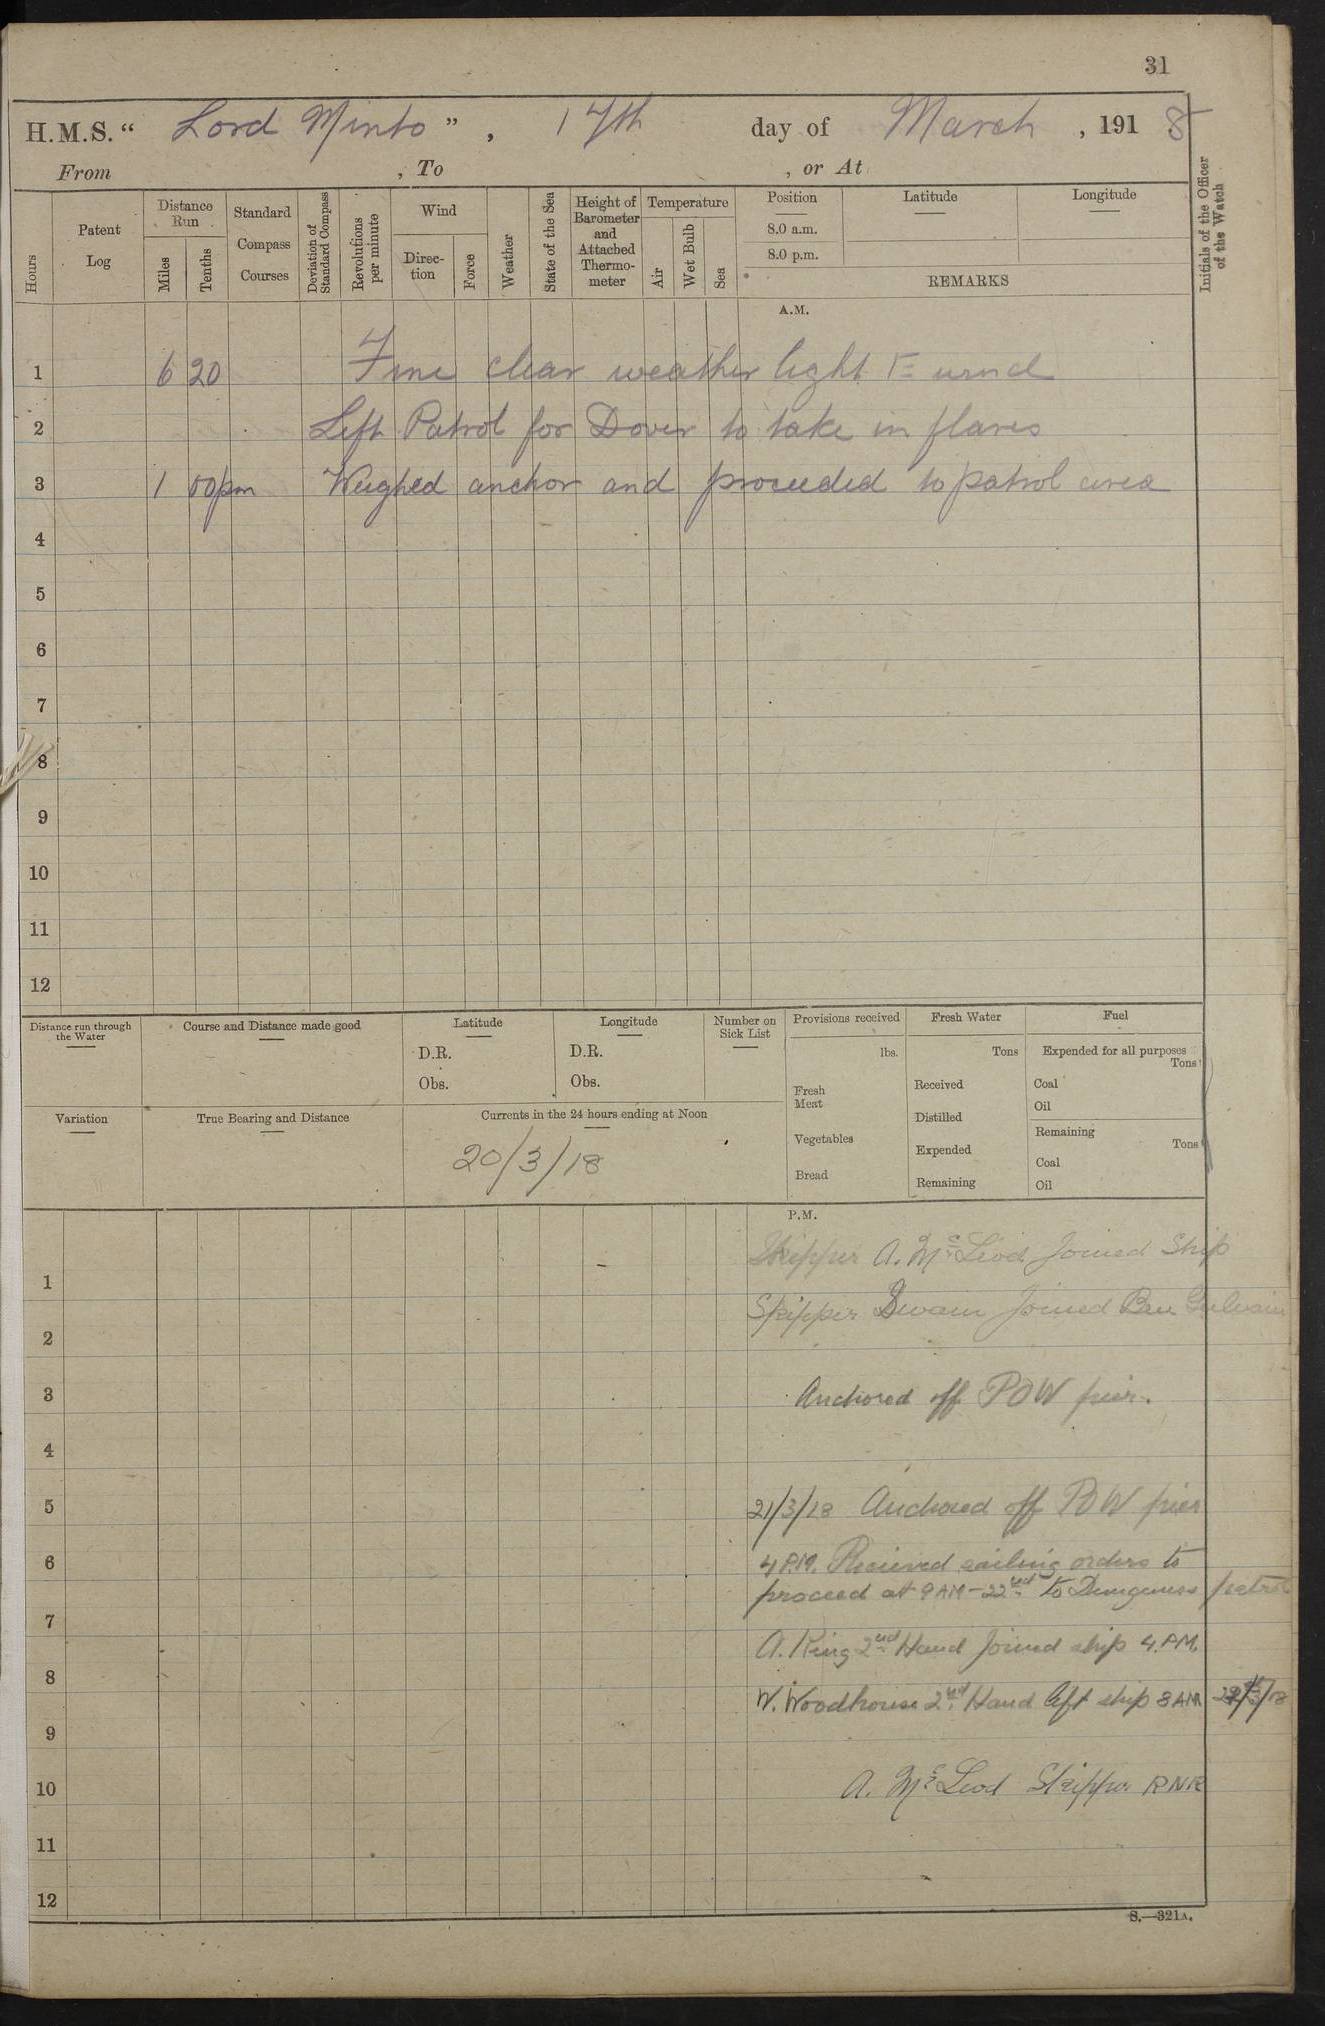 31
H.M.S. “ Lord Minto ” , 17th day of March , 191 8
From , To , or At
Hours
Patent Log
Distance Run
Miles
Tenths
Standard Compass Courses
Deviation of Standard Compass
Revolutions per minute
Wind
Direction
Force
Weather
State of the Sea
Height of Barometer and Attached Thermo-meter
Temperature
Air
Wet Bulb
Sea
Position
8.0 a.m.
8.0 p.m.
Latitude
Longitude
REMARKS
Initials of the Officer of the Watch
A.M.
1 6 20 Fine clear weather light E wind
2 Left Patrol for Dover to take in flares
3 1 00pm Weighed anchor and proceeded to patrol area
4
5
6
7
8
9
10
11
12
Distance run through the Water
Course and Distance made good
Latitude
D.R.
Obs.
Longitude
D.R.
Obs.
Number on Sick List
Provisions received
lbs.
Fresh Meat
Vegetables
Bread
Fresh Water
Tons
Received
Distilled
Expended
Remaining
Fuel
Expended for all purposes
Tons
Coal
Oil
Remaining
Tons
Coal
Oil
Variation
True Bearing and Distance
Currents in the 24 hours ending at Noon
20/3/18
P.M.
Skipper A. McLeod Joined Ship
1
Skipper Swain Joined Ben Gulvain
2
3 Anchored off POW pier.
4
5 21/3/18 Anchored off POW pier
6 4 P.M. Recieved sailing orders to
proceed at 9 AM - 22nd to Dungeness patrol
7
A. King 2nd Hand Joined ship 4. P.M.
8
W. Woodhouse 2nd Hand left ship 8 AM
9
10 A. McLeod Skipper RNR
11
12
S.—321A.